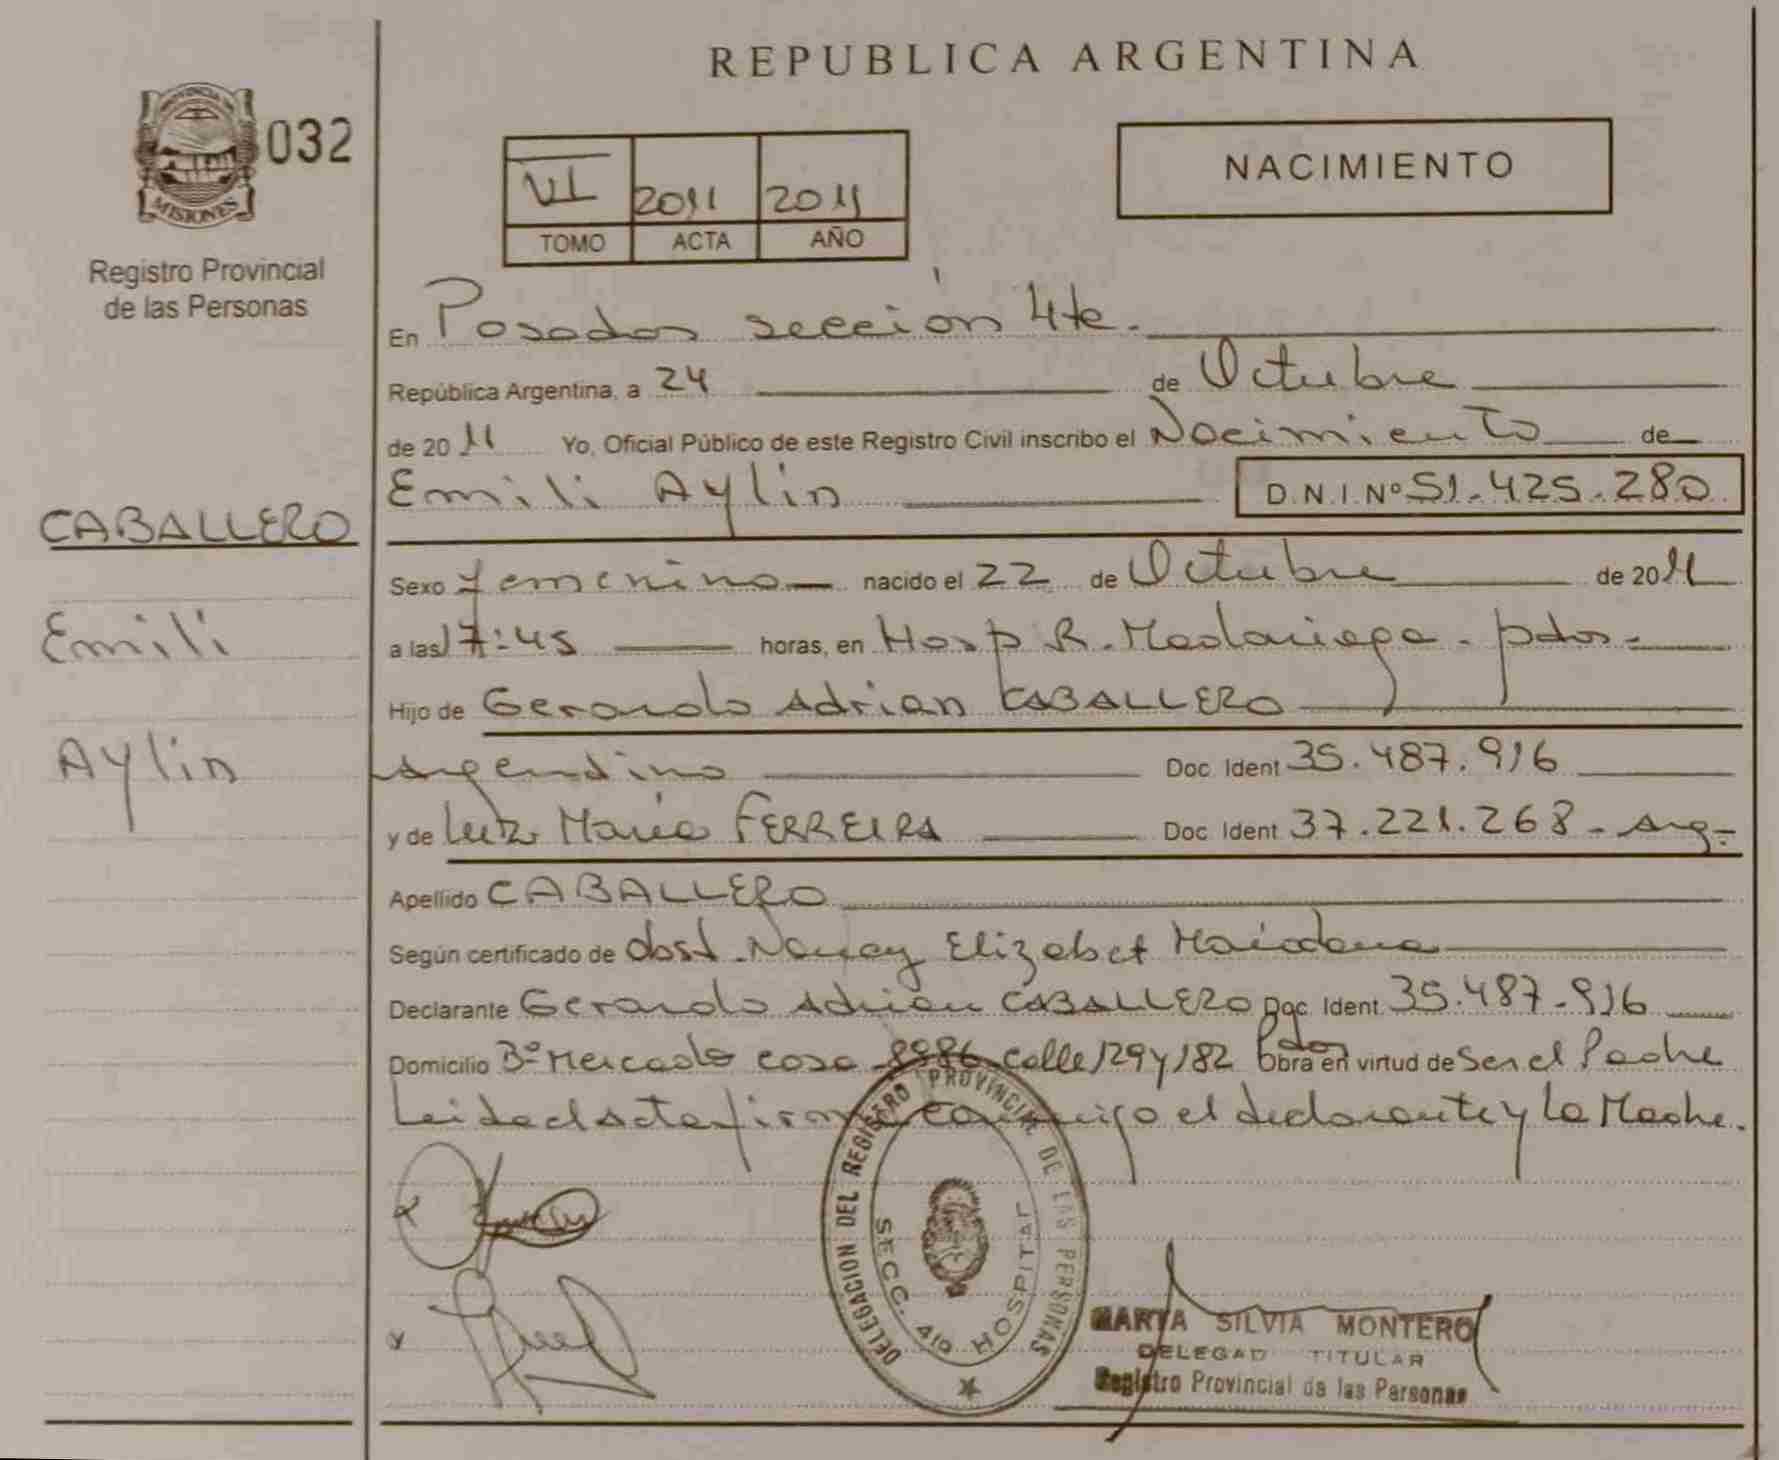 REPUBLICA ARGENTINA
PROVINCIA DE
MISIONES
032
Registro Provincial
de las Personas
VI 2011 2011
TOMO ACTA AÑO
NACIMIENTO
En Posadas sección 4ta.
República Argentina, a 24 de Octubre
de 2011 Yo, Oficial Público de este Registro Civil inscribo el Nacimiento de
Emili Aylin D.N.I.Nº 51.425.280
CABALLERO
Emili
Aylin
Sexo femenino nacido el 22 de Octubre de 2011
a las 17:45 horas, en Hosp R. Madariaga - pdas -
Hijo de Gerardo Adrian CABALLERO
Argentino Doc. Ident 35.487.916
y de Luz Maria FERREIRA Doc. Ident 37.221.268 - Arg-
Apellido CABALLERO
Según certificado de obst. Nancy Elizabet Maidana
Declarante Gerardo Adrian CABALLERO Doc. Ident 35.487.916
Domicilio Bº Mercado casa 8986 calle 129 y 182 Pdas Obra en virtud de Ser el Padre
Leida el Acta firma conmigo el declarante y la Madre.
DELEGACION DEL REGISTRO PROVINCIAL DE LAS PERSONAS
SECC. 4ta HOSPITAL
MARTA SILVIA MONTERO
DELEGAD TITULAR
Registro Provincial de las Personas